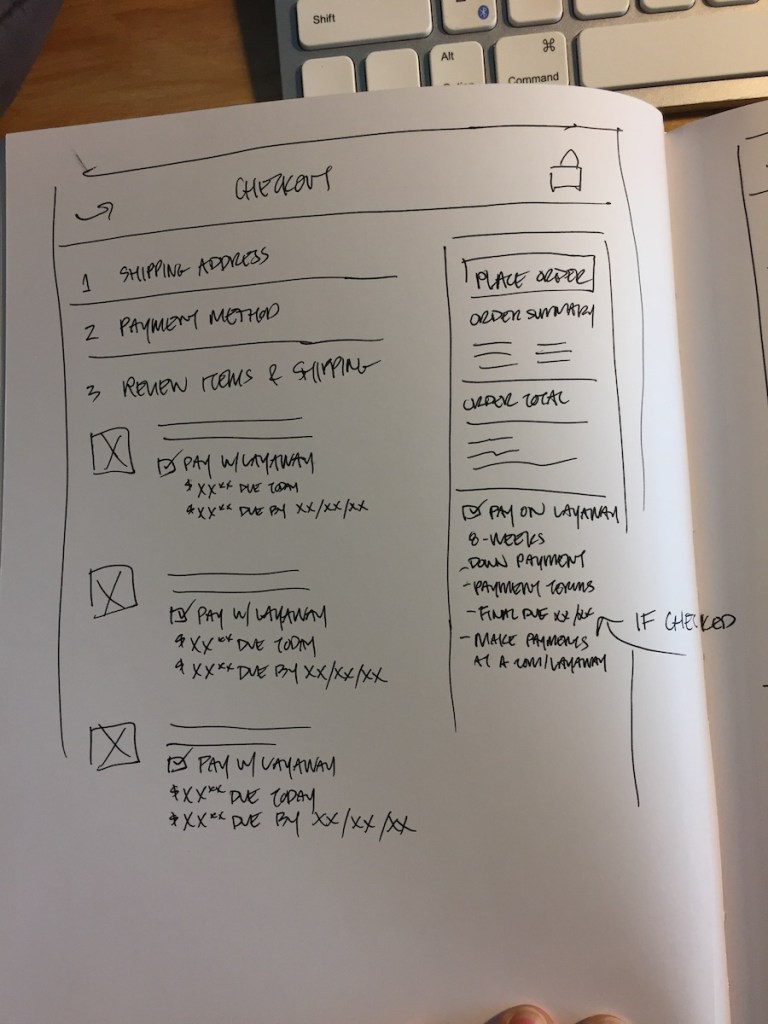 Shift
Alt
⌘
Command
CHECKOUT
1 SHIPPING ADDRESS
2 PAYMENT METHOD
3 REVIEW ITEMS & SHIPPING
PAY W/LAYAWAY
$XX.XX DUE TODAY
$XX.XX DUE BY XX/XX/XX
PAY W/LAYAWAY
$XX.XX DUE TODAY
$XX.XX DUE BY XX/XX/XX
PAY W/LAYAWAY
$XX.XX DUE TODAY
$XX.XX DUE BY XX/XX/XX
PLACE ORDER
ORDER SUMMARY
ORDER TOTAL
PAY ON LAYAWAY
8-WEEKS
- DOWN PAYMENT
- PAYMENT TERMS
- FINAL DUE XX/XX
- MAKE PAYMENTS
AT A .COM/LAYAWAY
IF CHECKED